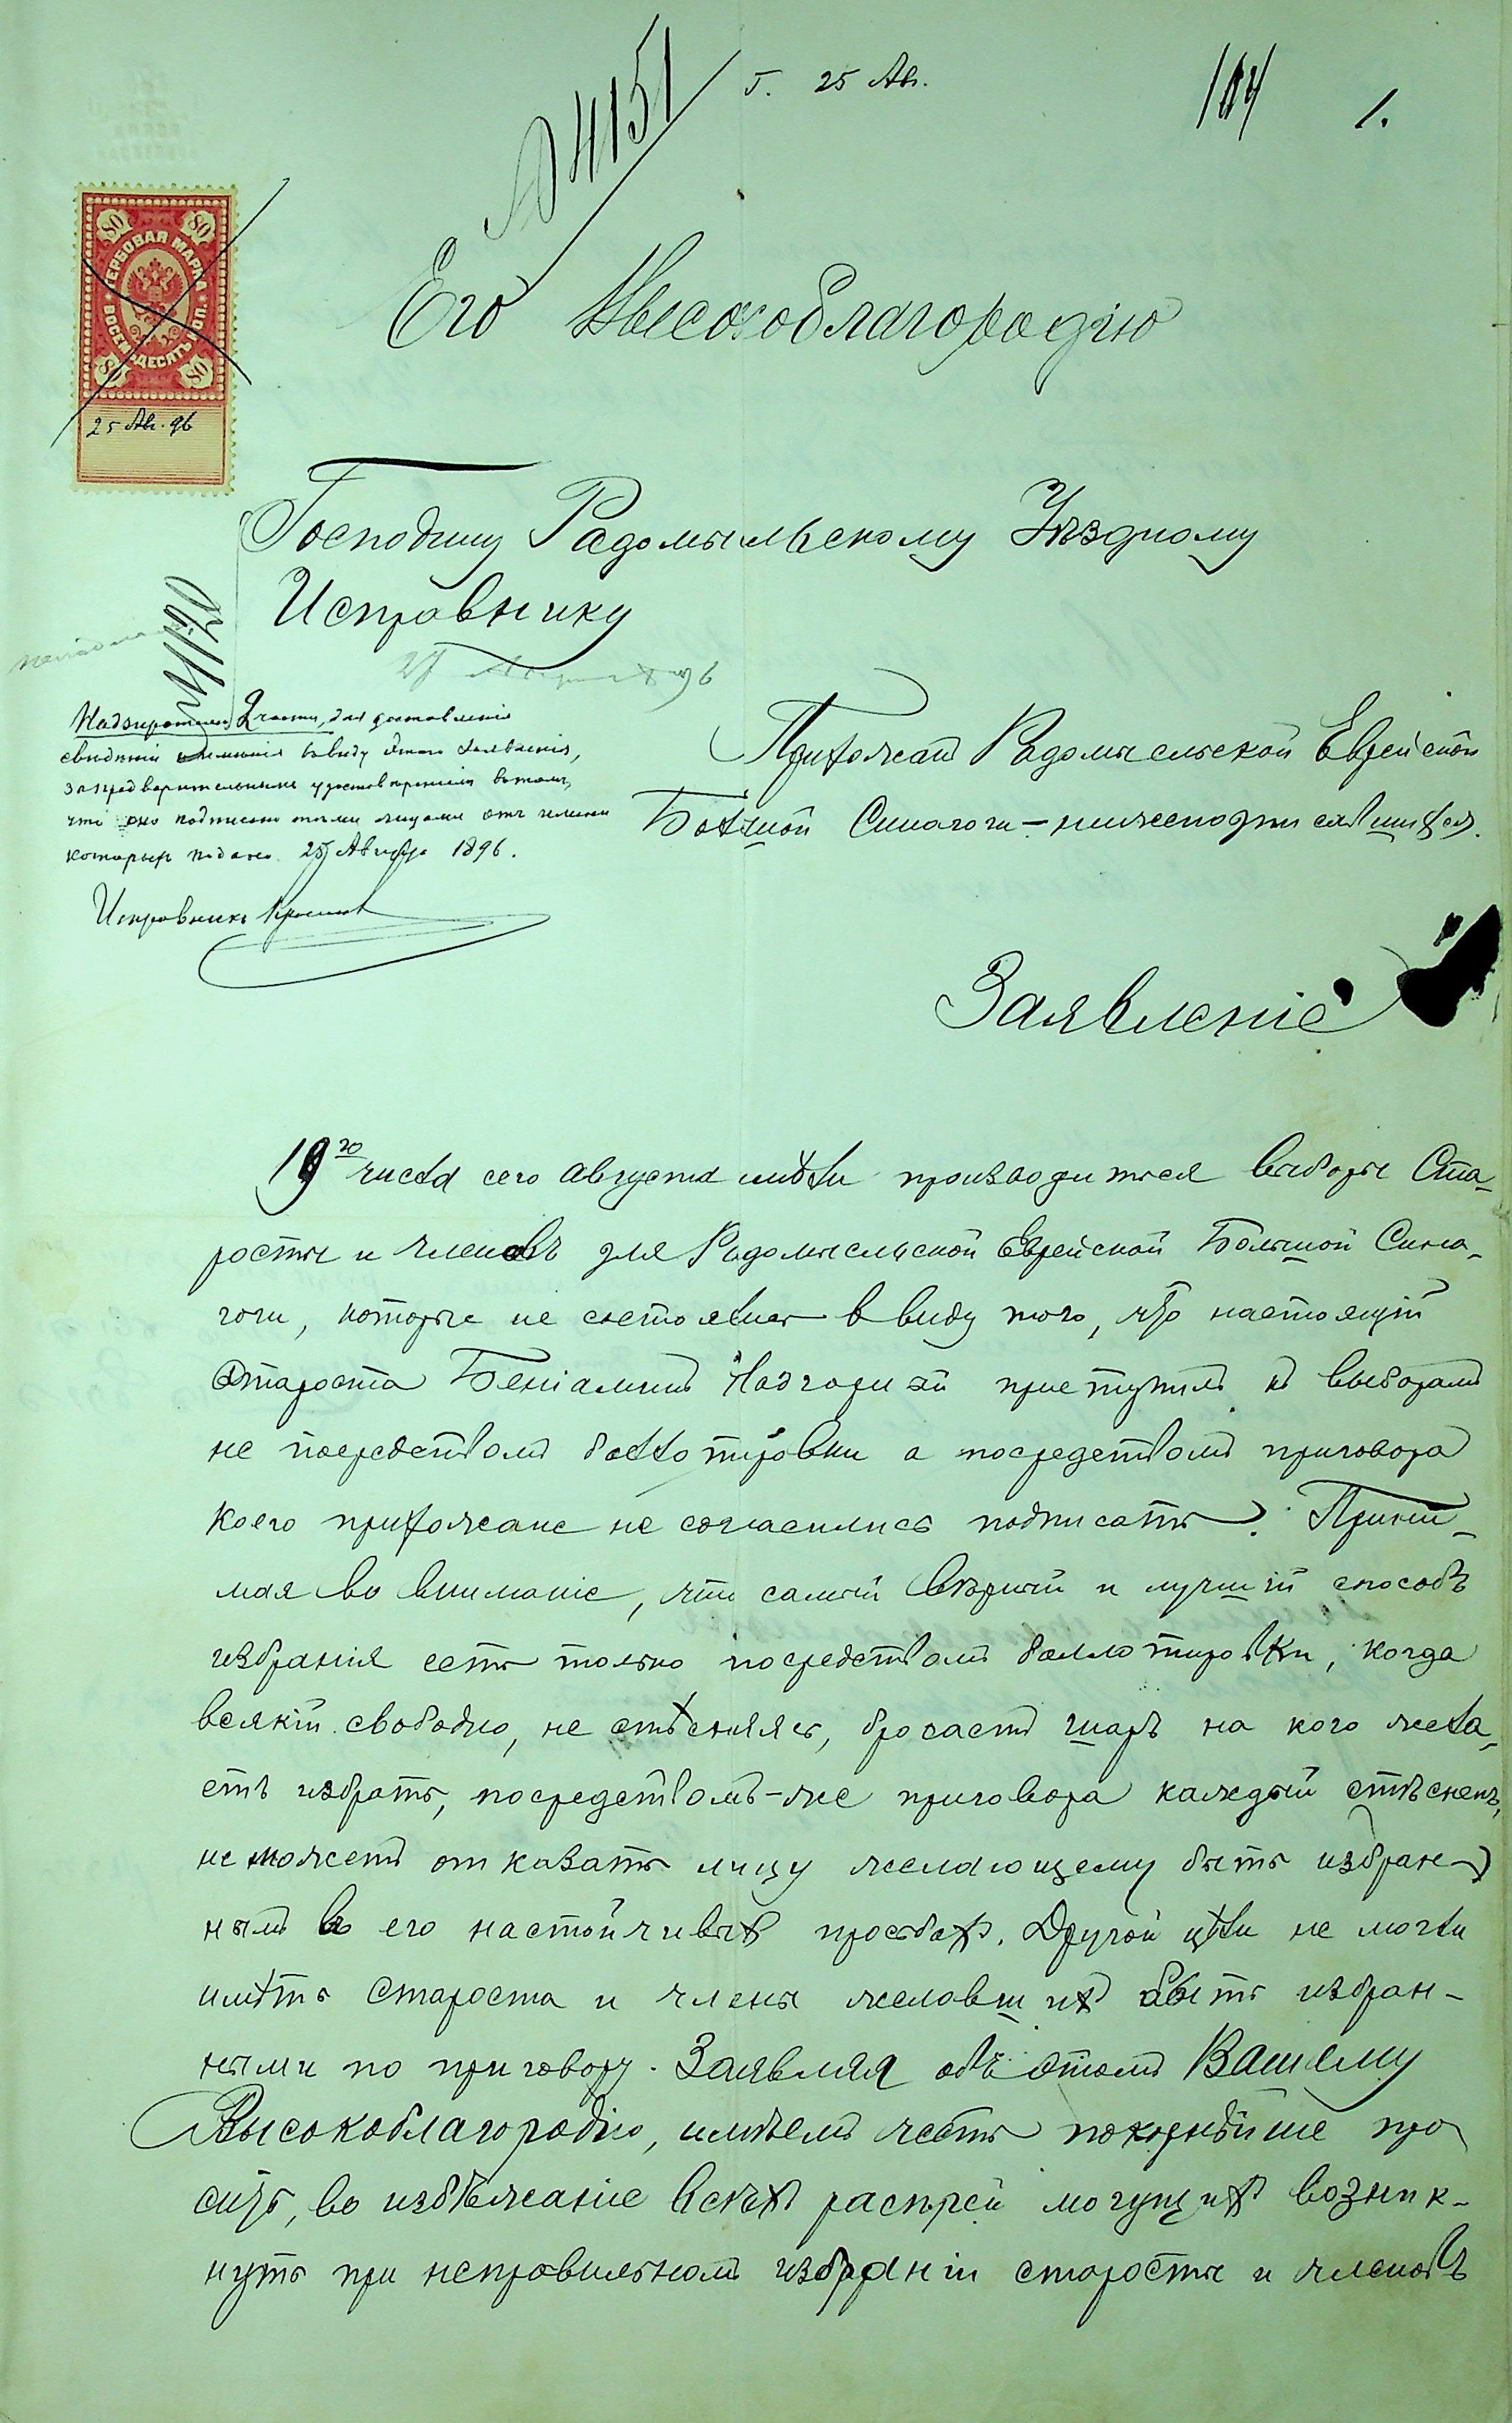 № 4151
25 Ав.
1.
80 80
ГЕРБОВАЯ МАРКА
ВОСЕМЬДЕСЯТЪ КОП.
80 80
25 Ав. 96
Его Высокоблагородію
Господину Радомысльскому Уѣздному
Исправнику
27 Августа 96
Прихожанъ Радомысльской Еврейской
Большой Синагоги – нижеподписавшихся.
Надзирателю 2 части, для доставленія
свѣдѣній въ виду этого заявленія,
за предварительнымъ удостовѣреніемъ въ томъ,
что оно подписано тѣми лицами отъ имени
которыхъ подано. 25 Августа 1896.
Исправникъ
Заявленіе
19го числа сего Августа имѣли производиться выборы Ста-
росты и членовъ для Радомысльской Еврейской Большой Сина-
гоги, которые не состоялись в виду того, что настоящій
староста Беніаминъ приступилъ къ выборамъ
не посредствомъ баллотировки а посредствомъ приговора
коего прихожане не согласились подписать. Прини-
мая во вниманіе, что самый вѣрный и лучшій способъ
избранія есть только посредствомъ баллотировки, когда
всякій свободно, не стѣсняясь, бросаетъ шаръ на кого жела-
етъ избрать, посредствомъ-же приговора каждый стѣсненъ,
не можетъ отказать лицу желающему быть избран-
нымъ въ его настойчивыхъ просьбахъ. Другой цѣли не могли
имѣть староста и члены желавшихъ быть избран-
ными по приговору. Заявляя объ этомъ Вашему
Высокоблагородію, имѣемъ честь покорнѣйше про
сить, во избѣжаніе всѣхъ распрей могущихъ возник-
нуть при неправильномъ избраніи старосты и членовъ